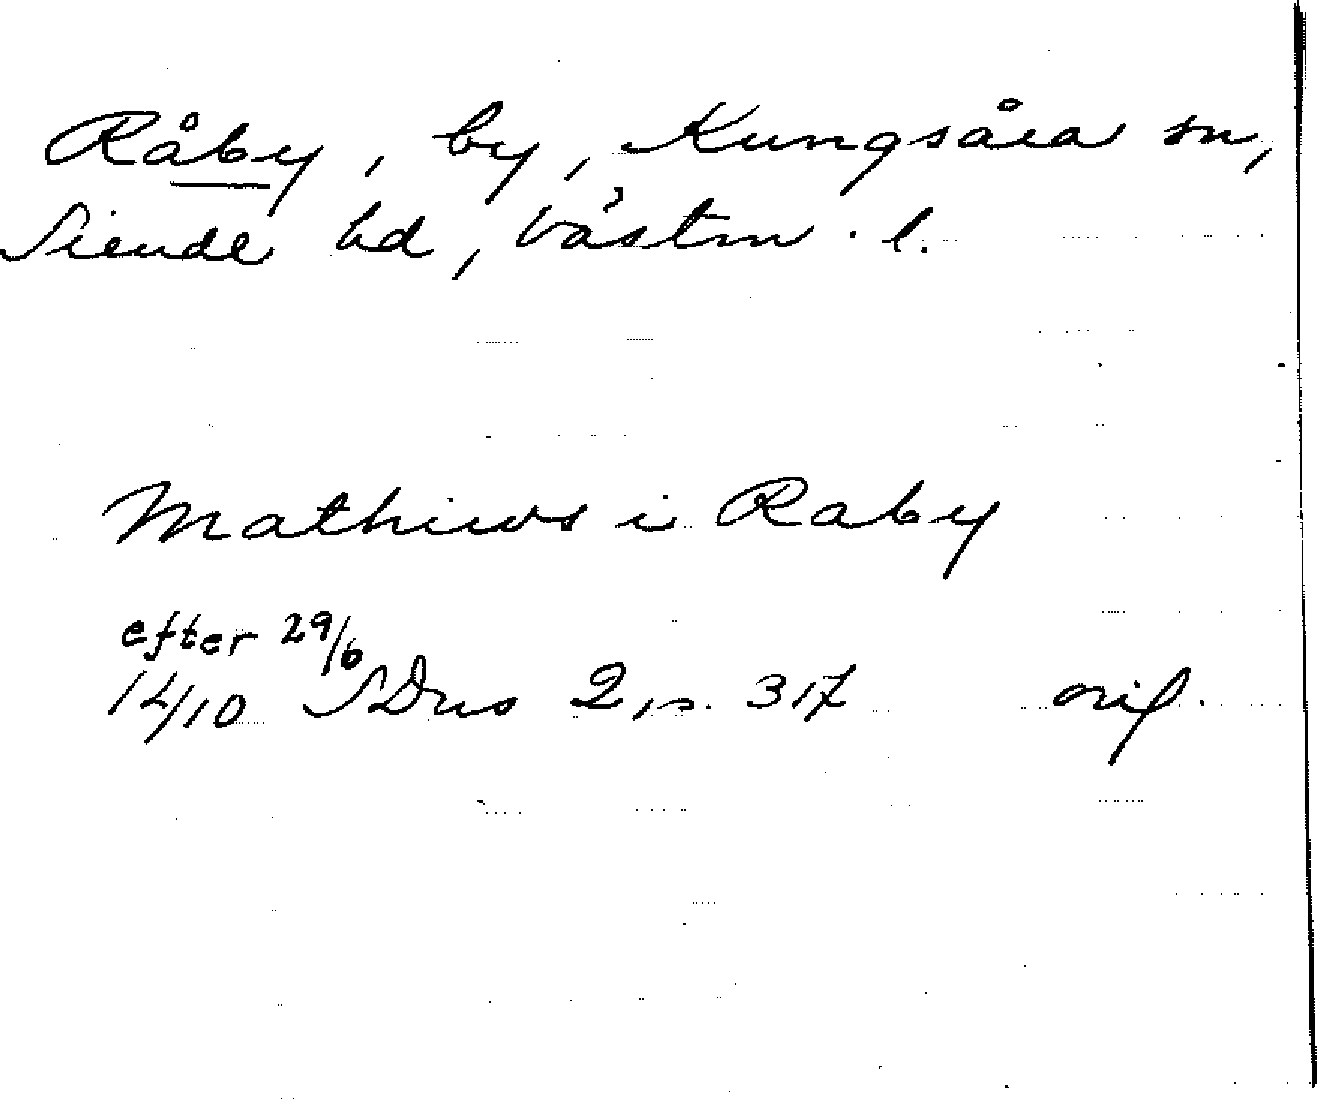 Råby, by, Kungsåra sn,
Siende hd, Västm. l.
Mathius i Raby
efter 29/6
14/10 SDns 2, s. 317 orig.